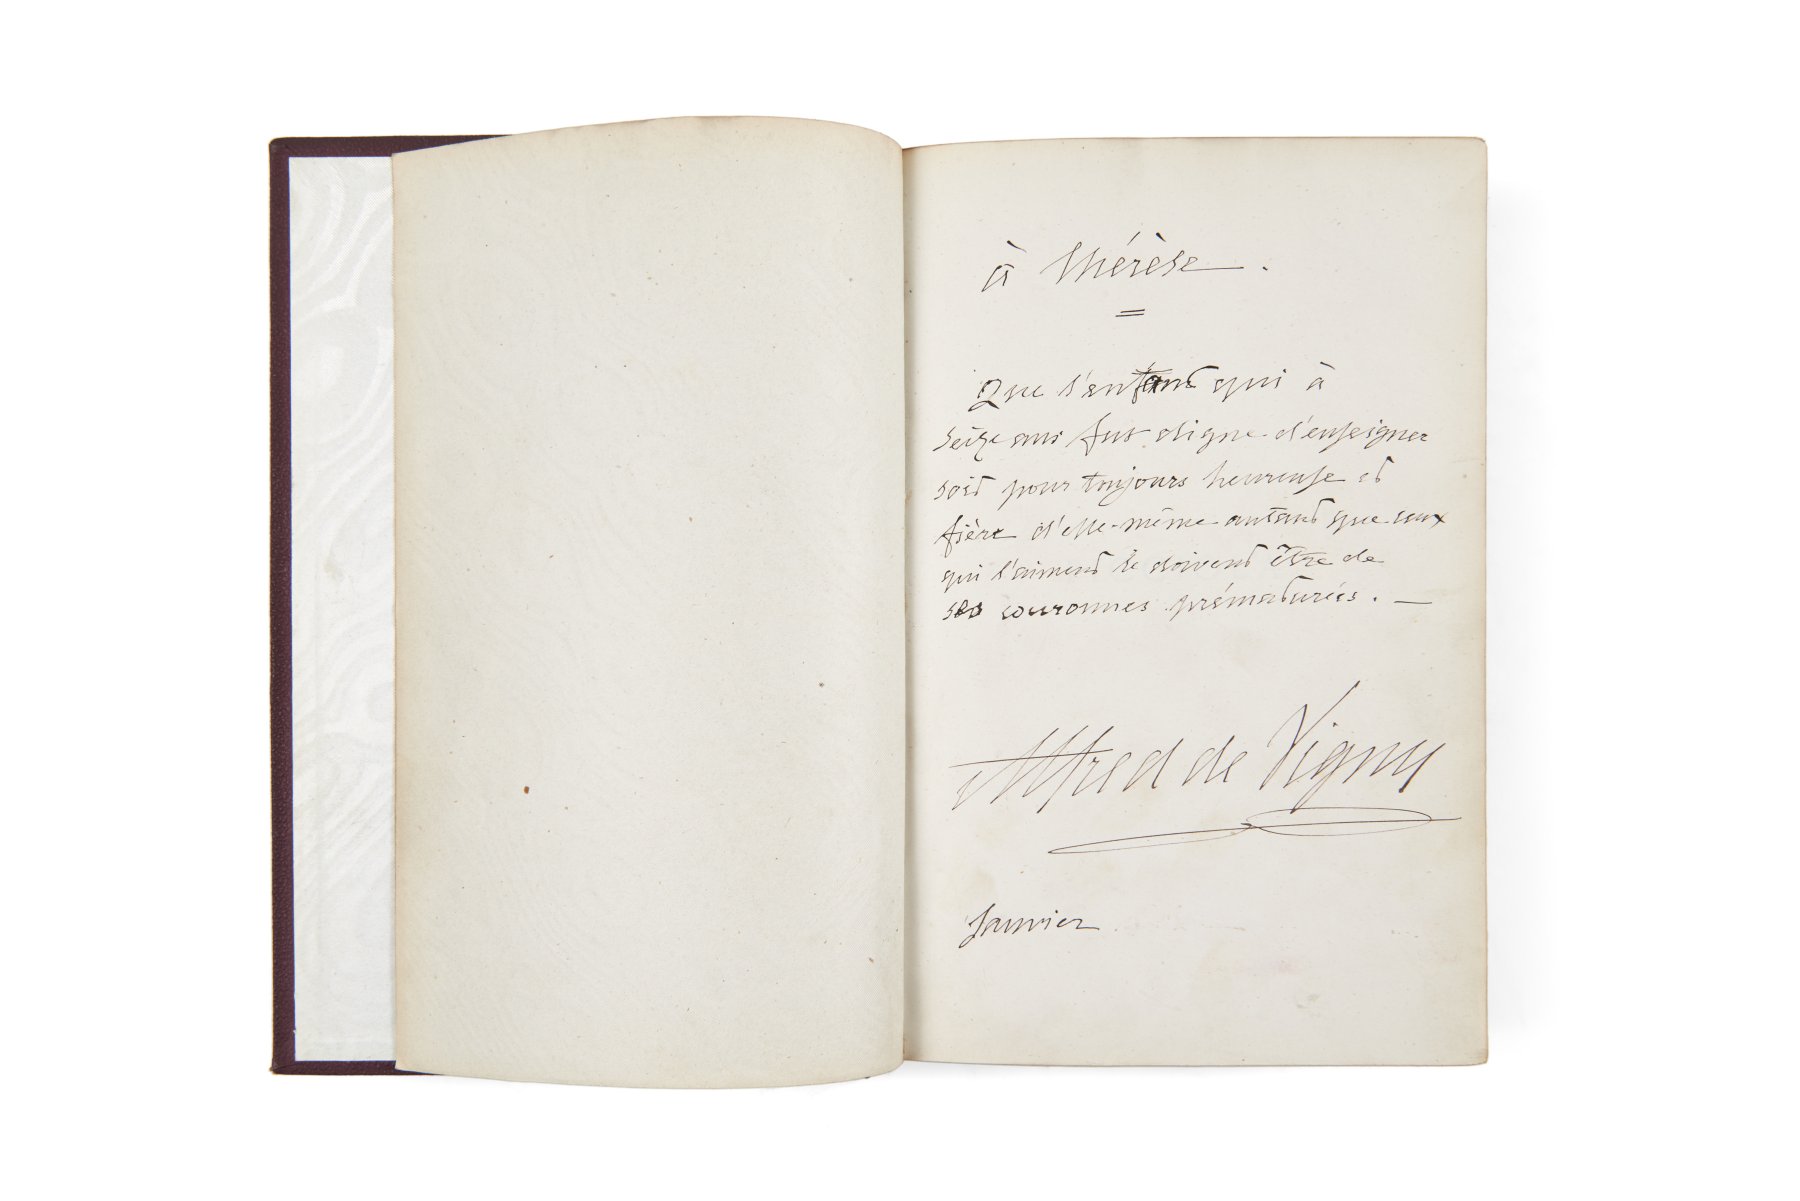 à Thérèse .
Que l'enfant qui à
seize ans fut digne d'enseigner
soit pour toujours heureuse et
fière d'elle-même autant que ceux
qui l'aiment le doivent être de
ses couronnes prématurées . —
Alfred de Vigny
Janvier